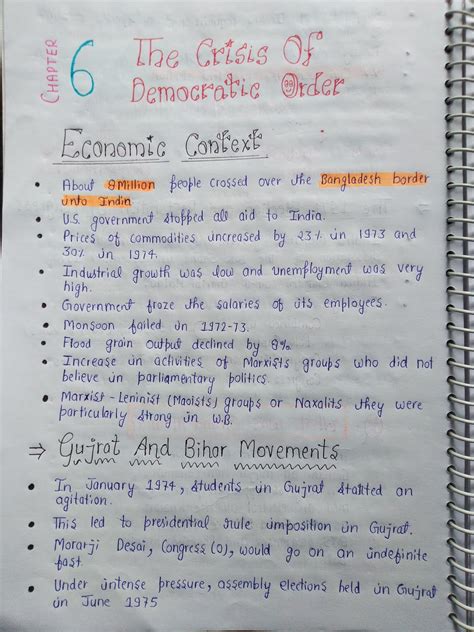 CHAPTER
6
The Crisis Of
Democratic Order
Economic Context
• About 8 Million people crossed over the Bangladesh border
into India
• U.S. government stopped all aid to India.
• Prices of commodities increased by 23% in 1973 and
30% in 1974.
• Industrial growth was low and unemployment was very
high.
• Government froze the salaries of its employees.
• Monsoon failed in 1972-73.
• Flood grain output declined by 8%
• Increase in activities of Marxists groups who did not
believe in parliamentary politics.
• Marxist-Leninist (Maoists) groups or Naxalits they were
particularly strong in W.B.
⇒ Gujrat And Bihar Movements
• In January 1974, students in Gujrat started an
agitation.
• This led to presidential rule imposition in Gujrat.
• Morarji Desai, Congress (O), would go on an indefinite
fast.
• Under intense pressure, assembly elections held in Gujrat
in June 1975